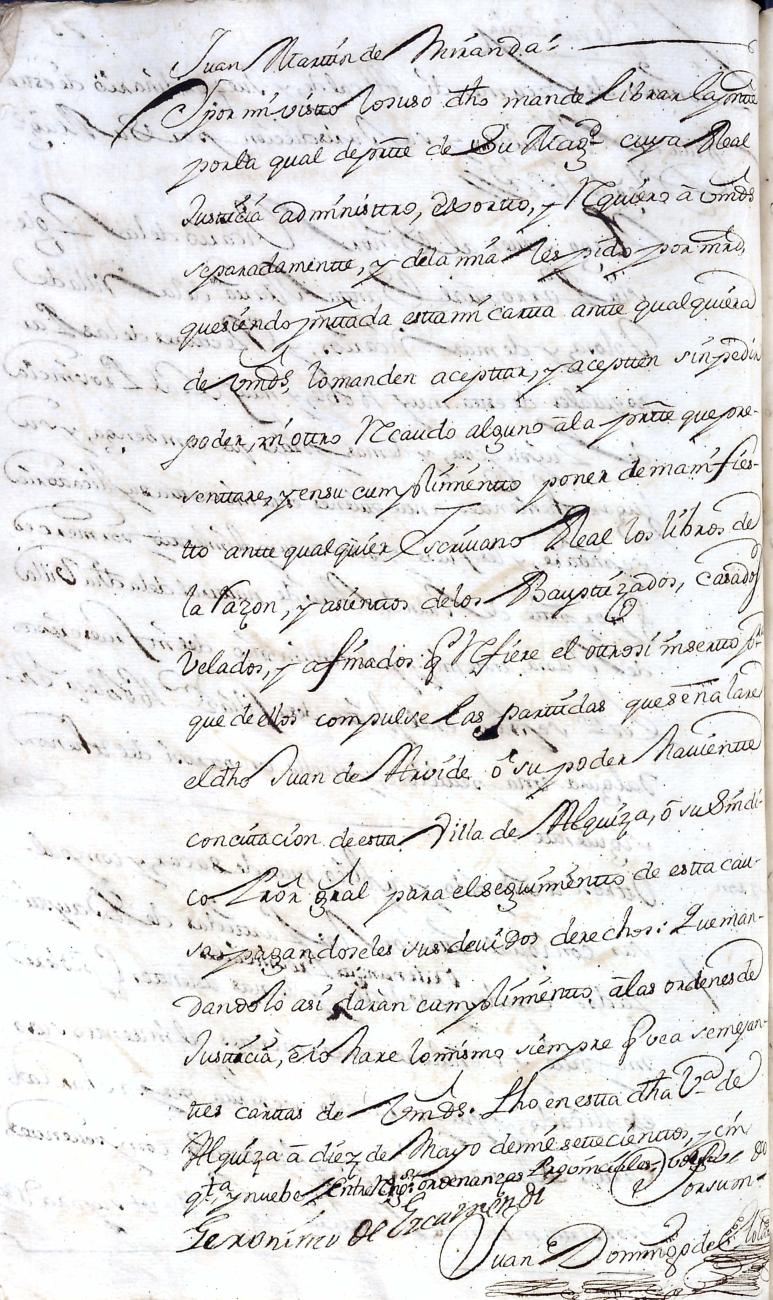 Juan Martin de Miranda:
Y por mi visto lo suso dho mande librar la pntte
por la qual de prtte de Su Magd. cuya Real
Justticia administtro, exsortto, y Rquiero â Vmds
separadamentte, y de la mia les pido por mrd,
que siendo pnttada estta mi cartta antte qualquiera
de Vmds, lo manden acepttar, y acepten sin pedir
poder, ni ottro Recaudo alguno â la prtte que pre-
senttare, y en su cumplimientto poner de manifies-
tto antte qualquier Escrivano Real los libros de
la razon, y asienttos de los Bauptizados, casados
Velados, y afinados q Refiere el ottrosi inserto pa
que de ellos compulse las parttidas que señalare
el dho Juan de Arvide ô su poder havientte
con cittacion de estta Villa de Alquiza, ô su Sindi-
co Pror gral para el seguimientto de estta cau-
sa pagandoseles sus devidos derechos: Que man-
dandolo asi, daràn cumplimientto, â las ordenes de
Justticia, è io hare lo mismo siempre q vea semejan-
ttes carttas de Vmds. Fho en estta dha Va de
Alquiza â diez de Mayo de mil settecienttos, y cin
qta y nuebe Entre Rgs: ordenanzas Provinciales
Geronimo de
Por su m-
Juan Domingo de